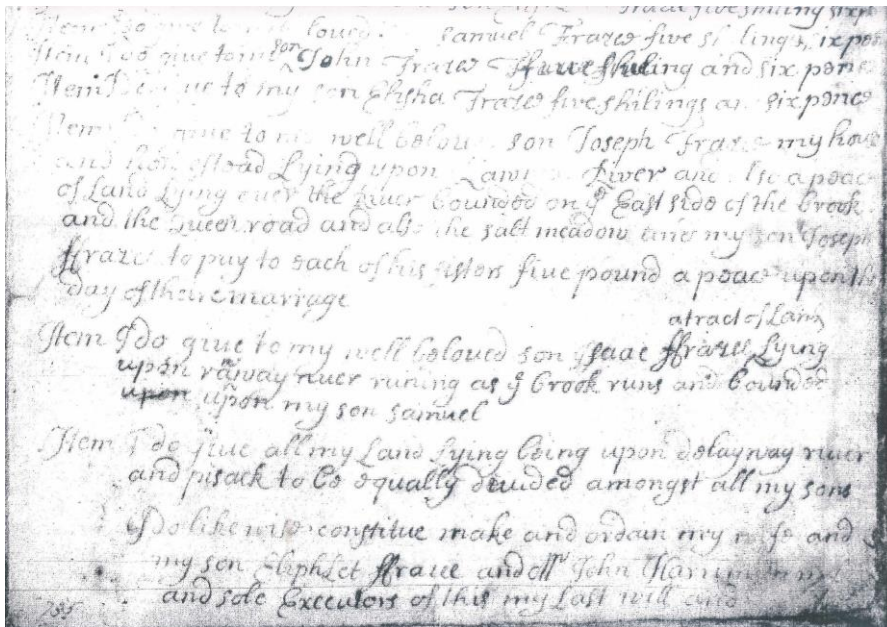 Isaac five shiling sixp
Item I do give to my loved Samuel Frazee five shilings six pen
Item I do give to my son John Frazee ffive shiling and six pence
Item I do give to my son Elisha Frazee five shilings and six pence
Item I do give to my well beloved son Joseph Frazee my house
and Lying upon River and also a peac
of Land Lying over the River bounded on ye East side of the brook
and the Queen road and also the salt meadow and my son Joseph
ffrazee to pay to each of his sisters five pound a peace upon the
day of their marrage
atract of Land
Item I do give to my well beloved son Isaac ffrazee Lying
upon raway river runing as ye brook runs and bounded
upon upon my son samuel
Item I do give all my Land Lying being upon delayway river
and pisack to be equally devided amongst all my sons
I do likewise constitue make and ordain my wife and
my son Eliphlet ffrazee and mr John Harriman
and sole Executors of this my Last will and